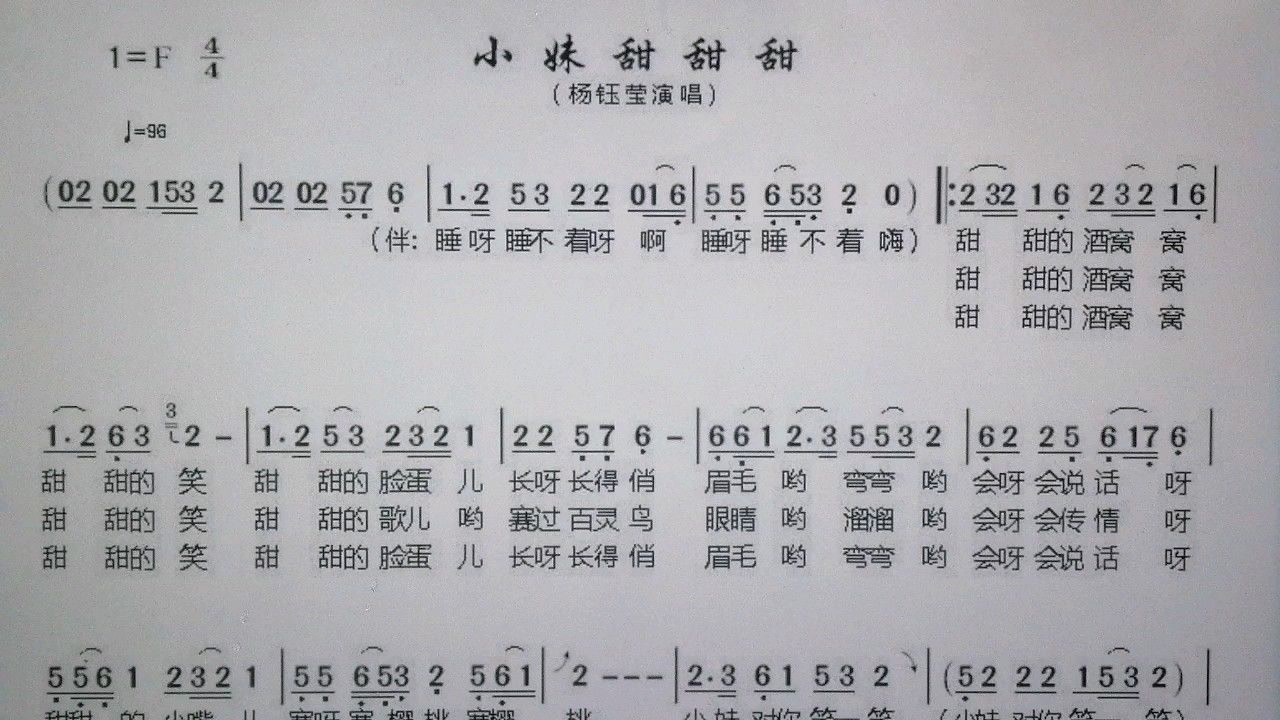 1=F 4/4 小妹甜甜甜
(杨钰莹演唱)
♩=96
(02 02 153 2 | 02 02 57 6 | 1·2 53 22 016 | 55 653 2 0) ‖:2 32 16 232 16 |
(伴: 睡呀睡不着呀 啊 睡呀睡不着嗨) 甜 甜的酒窝 窝
甜 甜的酒窝 窝
甜 甜的酒窝 窝
1·2 63 3 2 - | 1·2 53 232 1 | 22 57 6 - | 661 2·3 553 2 | 62 25 617 6 |
甜 甜的 笑 甜 甜的脸蛋 儿 长呀长得俏 眉毛 哟 弯弯 哟 会呀会说话 呀
甜 甜的 笑 甜 甜的歌儿 哟 赛过百灵鸟 眼睛 哟 溜溜 哟 会呀会传情 呀
甜 甜的 笑 甜 甜的脸蛋 儿 长呀长得俏 眉毛 哟 弯弯 哟 会呀会说话 呀
556 1 232 1 | 55 653 2 561 | 2 - - - | 2·3 61 53 2 | (52 22 153 2) |